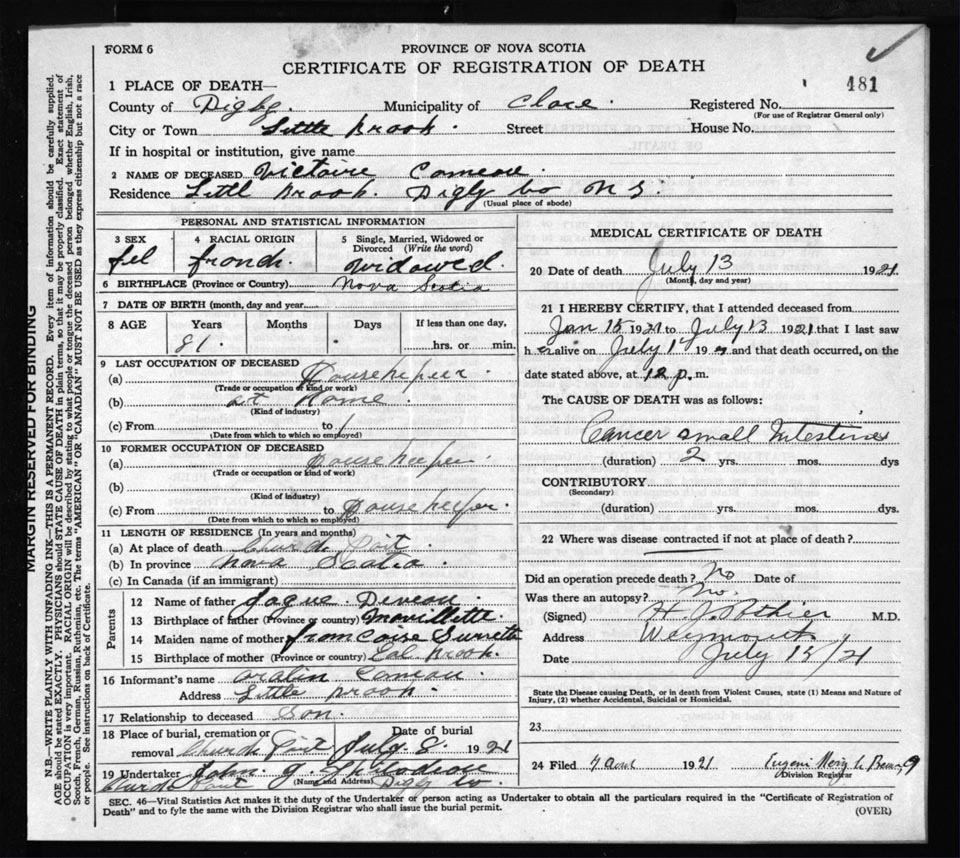 FORM 6
PROVINCE OF NOVA SCOTIA
CERTIFICATE OF REGISTRATION OF DEATH
481
1 PLACE OF DEATH—
County of Digby. Municipality of Clare. Registered No.
(For use of Registrar General only)
City or Town Little Brook. Street House No.
If in hospital or institution, give name
2 NAME OF DECEASED Victoire Comeau.
Residence Littl Brook. Digby Co N S.
(Usual place of abode)
PERSONAL AND STATISTICAL INFORMATION
3 SEX 4 RACIAL ORIGIN 5 Single, Married, Widowed or Divorced (Write the word)
fel french. Widowed.
6 BIRTHPLACE (Province or Country) Nova Scotia
7 DATE OF BIRTH (month, day and year
8 AGE Years Months Days If less than one day,
81. hrs. or min.
9 LAST OCCUPATION OF DECEASED
(a) Housekeper
(Trade or occupation or kind of work)
(b) at Home
(Kind of industry)
(c) From to
(Date from which to which so employed)
10 FORMER OCCUPATION OF DECEASED
(a) Housekeeper.
(Trade or occupation or kind of work)
(b)
(Kind of industry)
(c) From to Housekeeper.
(Date from which to which so employed)
11 LENGTH OF RESIDENCE (In years and months)
(a) At place of death Church Point.
(b) In province Nova Scotia.
(c) In Canada (if an immigrant)
Parents
12 Name of father Jaque Deveau.
13 Birthplace of father (Province or country) Mavillette
14 Maiden name of mother francoise Surrette
15 Birthplace of mother (Province or country) Eel Brook.
16 Informant's name Comeau
Address Little Brook.
17 Relationship to deceased Son.
18 Place of burial, cremation or removal Church Point Date of burial July 8. 1921
19 Undertaker John J. (Name and Address) Digby Co.
SEC. 46—Vital Statistics Act makes it the duty of the Undertaker or person acting as Undertaker to obtain all the particulars required in the "Certificate of Registration of
Death" and to fyle the same with the Division Registrar who shall issue the burial permit. (OVER)
MEDICAL CERTIFICATE OF DEATH
20 Date of death July 13 1921
(Month, day and year)
21 I HEREBY CERTIFY, that I attended deceased from
Jan 15 1921 to July 13 1921 that I last saw
h er alive on July 1 19 and that death occurred, on the
date stated above, at 12 p. m.
The CAUSE OF DEATH was as follows:
Cancer small Intestines
(duration) 2 yrs. mos. dys
CONTRIBUTORY
(Secondary)
(duration) yrs. mos. dys.
22 Where was disease contracted if not at place of death?
Did an operation precede death? No Date of
Was there an autopsy? No.
(Signed) H. J. Pothier M.D.
Address Weymouth
Date July 13/21
State the Disease causing Death, or in death from Violent Causes, state (1) Means and Nature of
Injury, (2) whether Accidental, Suicidal or Homicidal.
23
24 Filed 7 Aout 1921
Division Registrar
MARGIN RESERVED FOR BINDING
N.B.—WRITE PLAINLY WITH UNFADING INK—THIS IS A PERMANENT RECORD. Every item of information should be carefully supplied.
AGE should be stated EXACTLY. PHYSICIANS should STATE CAUSE OF DEATH in plain terms, so that it may be properly classified. Exact statement of
OCCUPATION is very important. RACIAL ORIGIN will be described by stating to what people or tongue the deceased person belonged whether English, Irish,
Scotch, French, German, Russian, Ruthenian, etc. The terms "AMERICAN" OR "CANADIAN" MUST NOT BE USED as they express citizenship but not a race
or people. See instructions on back of Certificate.